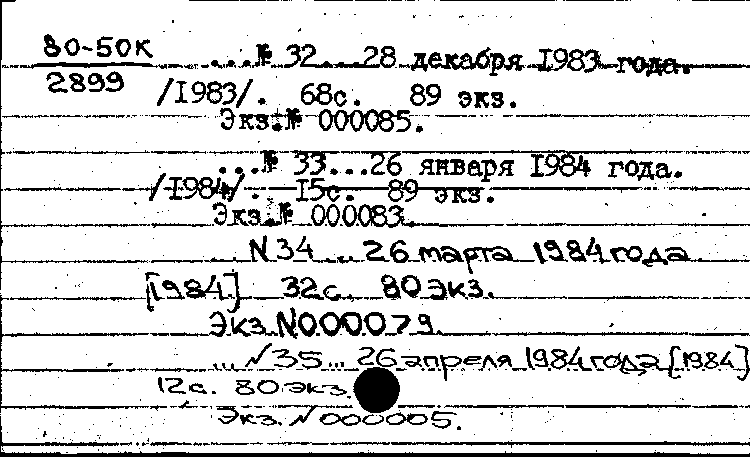 80-50к
2899
...№ 32...28 декабря 1983 года.
/1983/. 68с. 89 экз.
Экз.№ 000085.
...№ 33...26 января 1984 года.
/1984/. 15с. 89 экз.
Экз.№ 000083.
N34 ... 26 марта 1984 года
[1984] 32с. 80 экз.
Экз. N000079.
... N35 ... 26 апреля 1984 года [1984]
12с. 80 экз.
Экз. N000005.